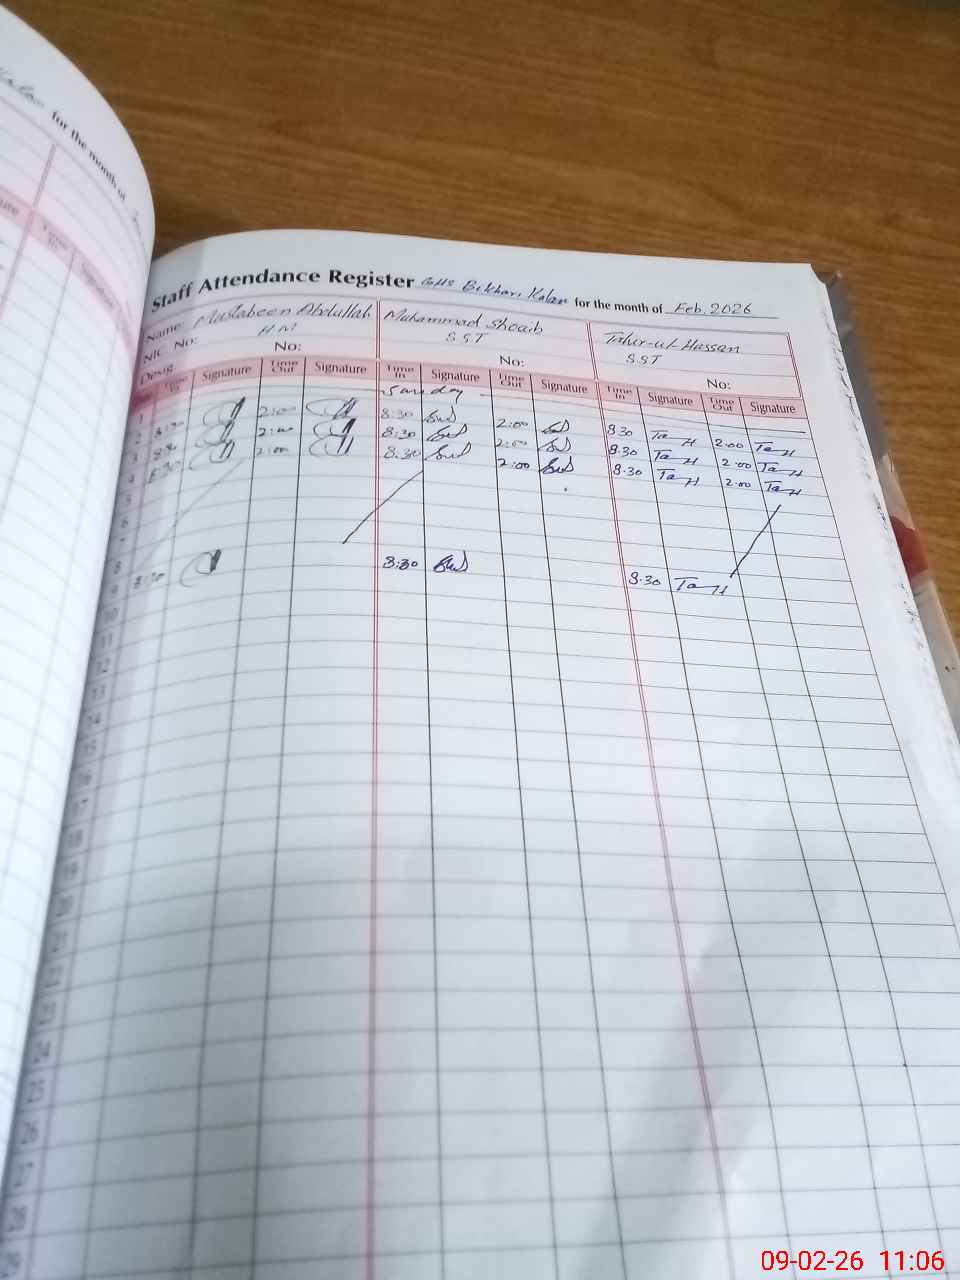 for the month of
Staff Attendance Register GHS Bikhari Kalan for the month of Feb. 2026
Name: Mastabeen Abdullah Muhammad Shoaib Tahir-ul-Hassan
NIC. No: HM SST SST
Desig No: No: No:
Time In Signature Time Out Signature Time In Signature Time Out Signature Time In Signature Time Out Signature
1 Sunday
2 8:30 2:00 8:30 2:00 8:30 TaH 2:00 TaH
3 8:30 2:00 8:30 2:00 8:30 TaH 2:00 TaH
4 8:30 2:00 8:30 2:00 8:30 TaH 2:00 TaH
5
6
7
8
9 8:30 8:30 8:30 TaH
10
11
12
13
14
15
16
17
18
19
20
21
22
23
24
25
26
27
28
29
09-02-26 11:06